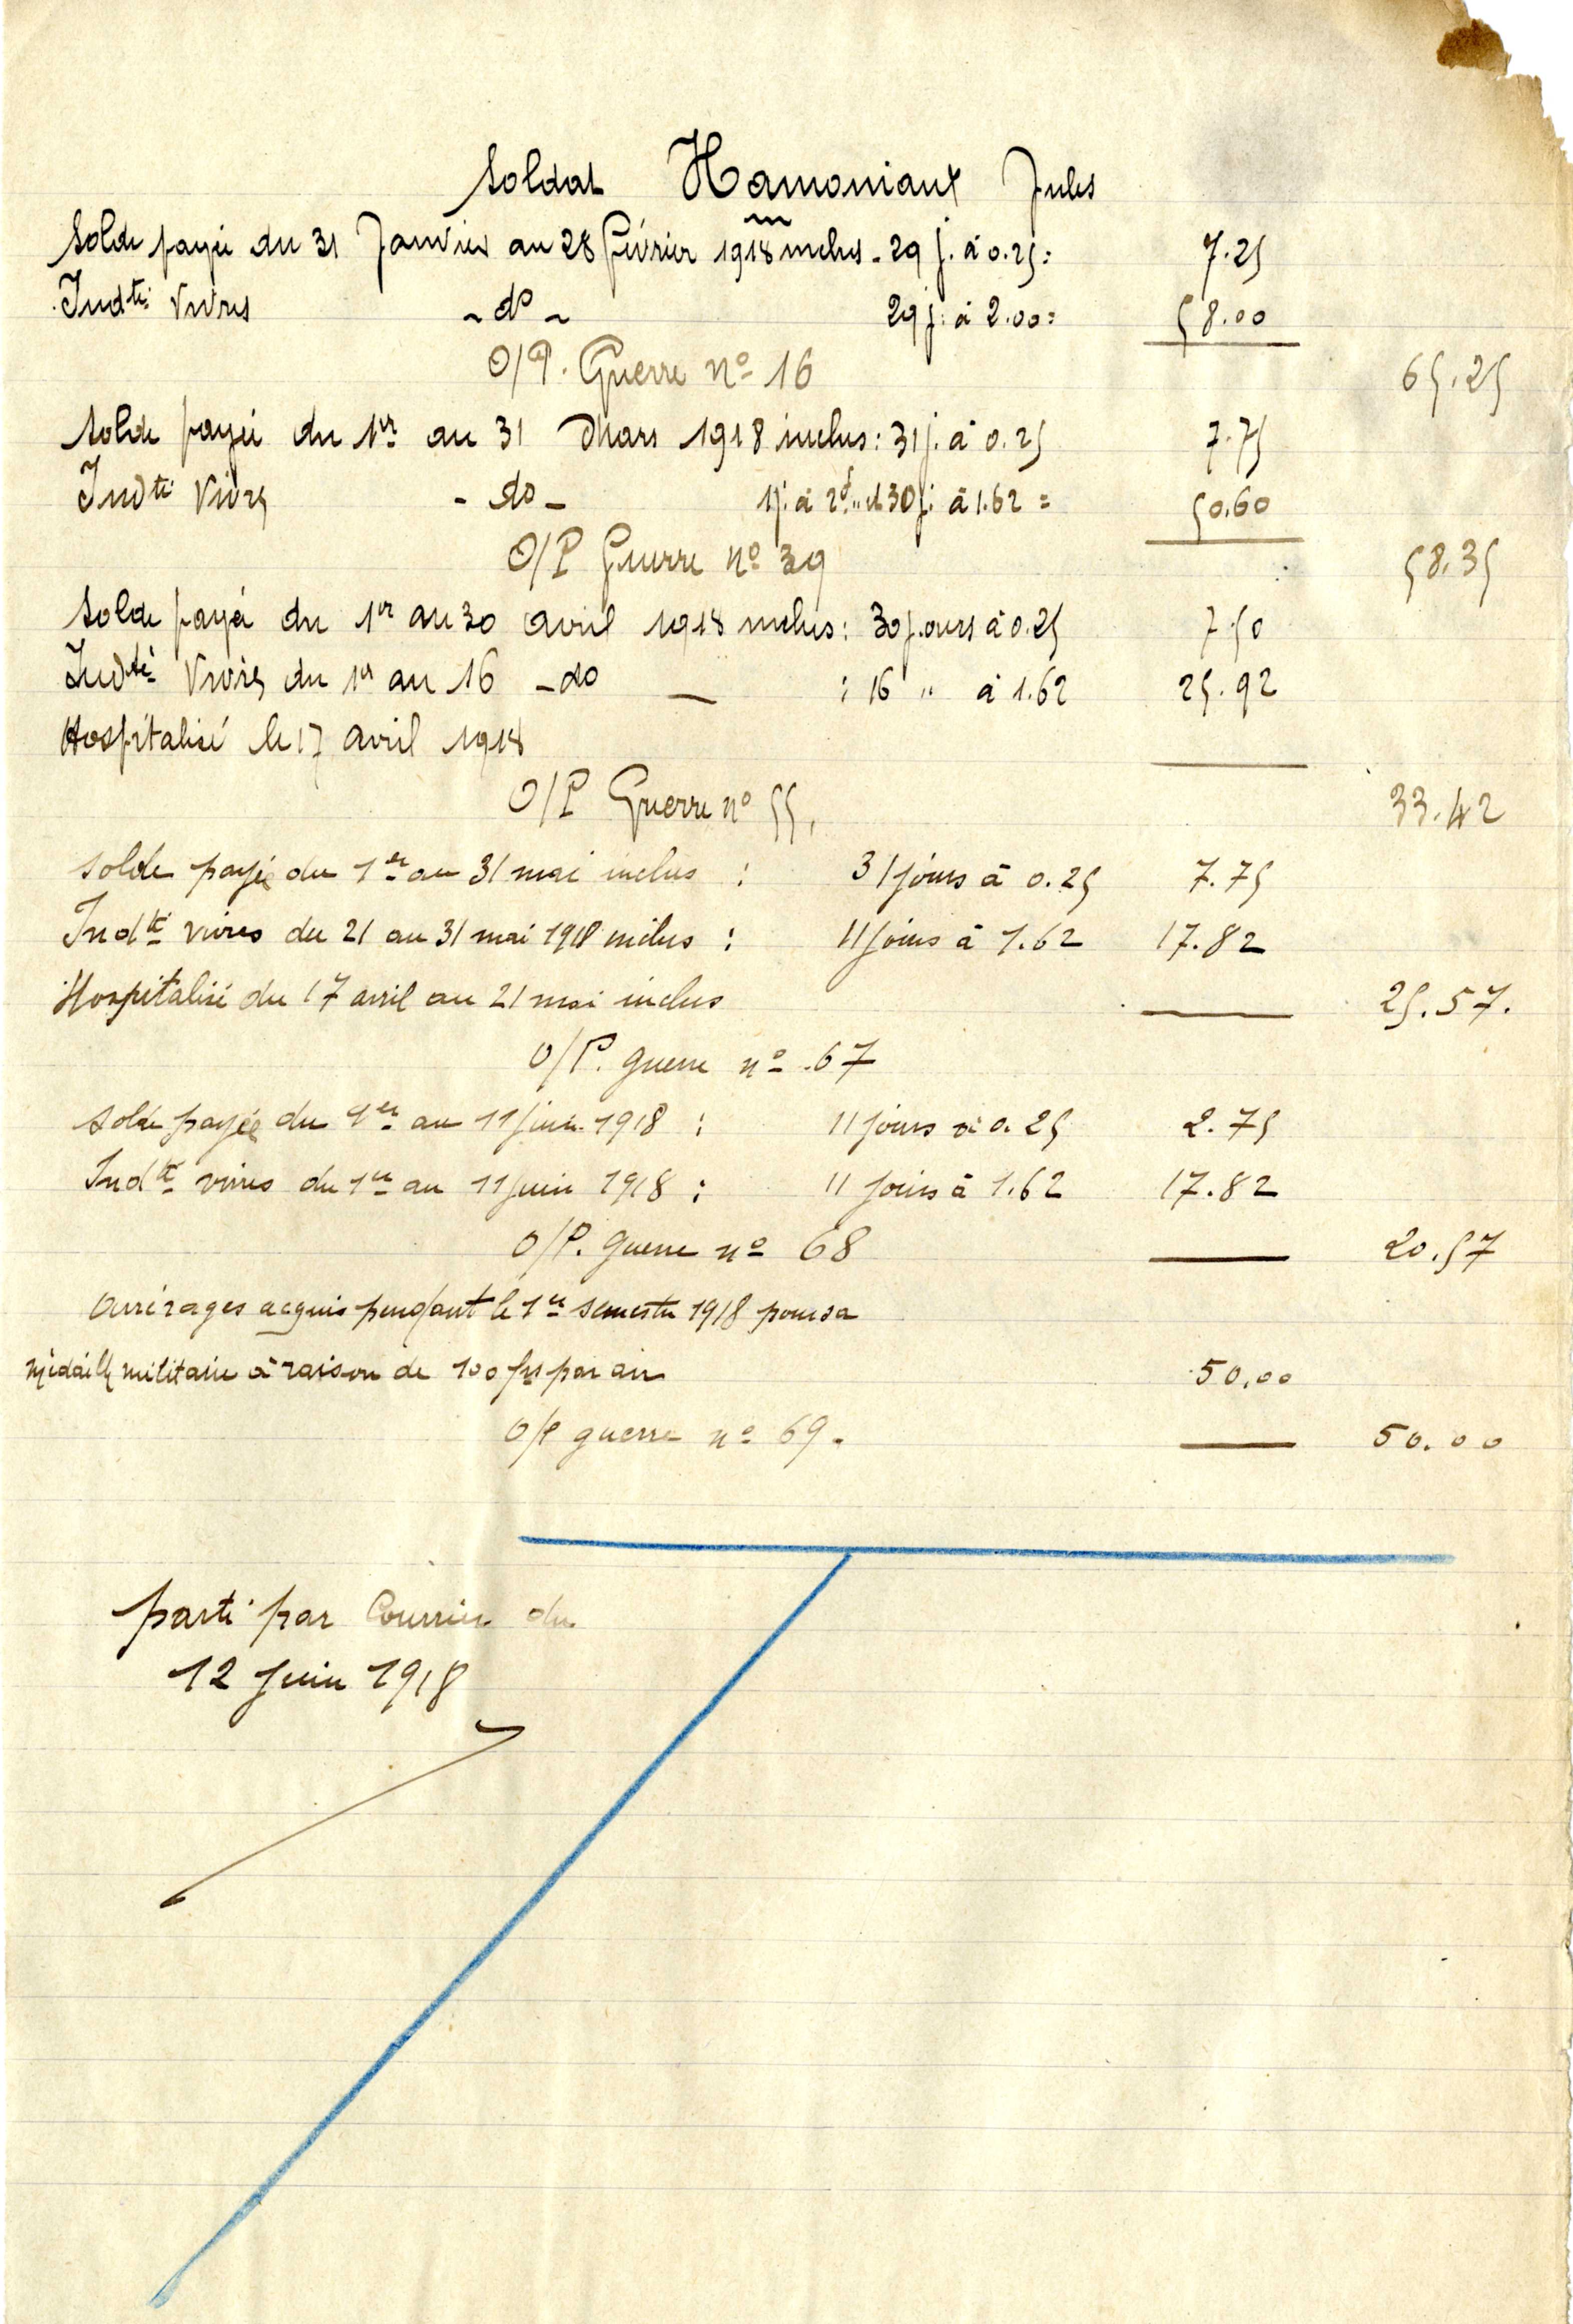 Soldat Hamoniaux Jules
Solde payée du 31 Janvier au 28 février 1918 inclus - 29 j. à 0.25 = 7.25
Indté Vivres - do - 29 j. à 2.00 = 58.00
O/P. Guerre No 16 65.25
Solde payée du 1er au 31 Mars 1918 inclus : 31 j. à 0.25 7.75
Indté Vivres - do - 1 j. à 2f." et 30 j. à 1.62 = 50.60
O/P Guerre No 39 58.35
Solde payée du 1er au 30 avril 1918 inclus : 30 jours à 0.25 7.50
Indté Vivres du 1er au 16 - do — : 16 " à 1.62 25.92
Hospitalisé le 17 avril 1918
O/P Guerre no 55. 33.42
solde payée du 1er au 31 mai inclus : 31 jours à 0.25 7.75
Indté vivres du 21 au 31 mai 1918 inclus : 11 jours à 1.62 17.82
Hospitalisé du 17 avril au 21 mai inclus 25.57.
O/P. guerre no .67
solde payée du 1er au 11 juin 1918 : 11 jours à 0.25 2.75
Indté vivres du 1er au 11 juin 1918 : 11 jours à 1.62 17.82
O/P. guerre no 68 20.57
Arrérages acquis pendant le 1er semestre 1918 pour sa
médaille militaire à raison de 100 frs par an 50.00
O/P guerre no 69. 50.00
parti par Courrier du
12 juin 1918